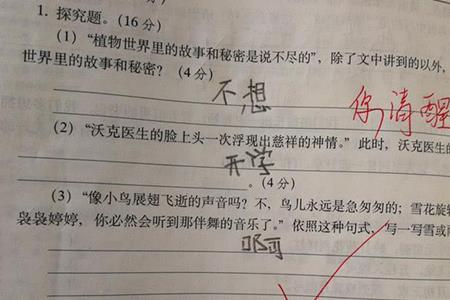 1. 探究题。(16 分)
(1) “植物世界里的故事和秘密是说不尽的”,除了文中讲到的以外,
世界里的故事和秘密? (4 分)
不想
你清醒
(2) “沃克医生的脸上头一次浮现出慈祥的神情。”此时,沃克医生的
开学
。(4 分)
(3) “像小鸟展翅飞逝的声音吗?不,鸟儿永远是急匆匆的;雪花旋转
袅袅婷婷,你必然会听到那伴舞的音乐了。”依照这种句式,写一写雪或雨